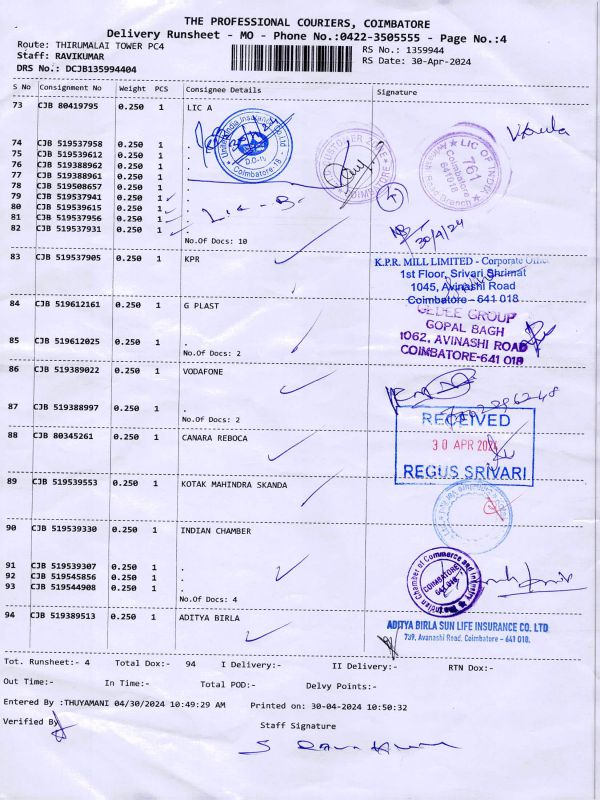 THE PROFESSIONAL COURIERS, COIMBATORE
Delivery Runsheet - MO - Phone No.:0422-3505555 - Page No.:4
Route: THIRUMALAI TOWER PC4
RS No.: 1359944
Staff: RAVIKUMAR
RS Date: 30-Apr-2024
DRS No.: DCJB135994404
S No Consignment No Weight PCS Consignee Details Signature
73 CJB 80419795 0.250 1 LIC A
74 CJB 519537958 0.250 1 .
75 CJB 519539612 0.250 1 .
76 CJB 519388962 0.250 1 .
77 CJB 519388961 0.250 1 .
78 CJB 519508657 0.250 1 .
79 CJB 519537941 0.250 1 .
80 CJB 519539615 0.250 1 .
81 CJB 519537956 0.250 1 .
82 CJB 519537931 0.250 1 .
Lic - B.
30/4/24
No.Of Docs: 10
LIC OF INDIA
761
Coimbatore
641018
83 CJB 519537905 0.250 1 KPR
K.P.R. MILL LIMITED - Corporate Office
1st Floor, Srivari Shrimat
1045, Avinashi Road
Coimbatore - 641 018
84 CJB 519612161 0.250 1 G PLAST
GEDEE GROUP
GOPAL BAGH
1062, AVINASHI ROAD
COIMBATORE-641 018
85 CJB 519612025 0.250 1 .
No.Of Docs: 2
86 CJB 519389022 0.250 1 VODAFONE
87 CJB 519388997 0.250 1 .
No.Of Docs: 2
88 CJB 80345261 0.250 1 CANARA REBOCA
RECEIVED
30 APR 2024
REGUS SRIVARI
89 CJB 519539553 0.250 1 KOTAK MAHINDRA SKANDA
90 CJB 519539330 0.250 1 INDIAN CHAMBER
91 CJB 519539307 0.250 1 .
92 CJB 519545856 0.250 1 .
93 CJB 519544908 0.250 1 .
No.Of Docs: 4
Indian Chamber of Commerce and Industry
COIMBATORE
641 018
94 CJB 519389513 0.250 1 ADITYA BIRLA
ADITYA BIRLA SUN LIFE INSURANCE CO. LTD
739, Avanashi Road, Coimbatore - 641 018.
Tot. Runsheet:- 4 Total Dox:- 94 I Delivery:- II Delivery:- RTN Dox:-
Out Time:- In Time:- Total POD:- Delvy Points:-
Entered By :THUYAMANI 04/30/2024 10:49:29 AM Printed on: 30-04-2024 10:50:32
Verified By
Staff Signature